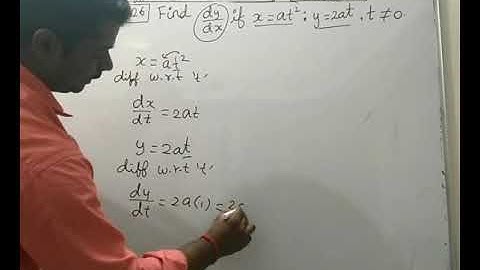 26 Find dy/dx if x=at²; y=2at, t≠0.
x=at²
diff w.r.t 't'
dx/dt = 2at
y=2at
diff w.r.t 't'
dy/dt = 2a(1) = 2